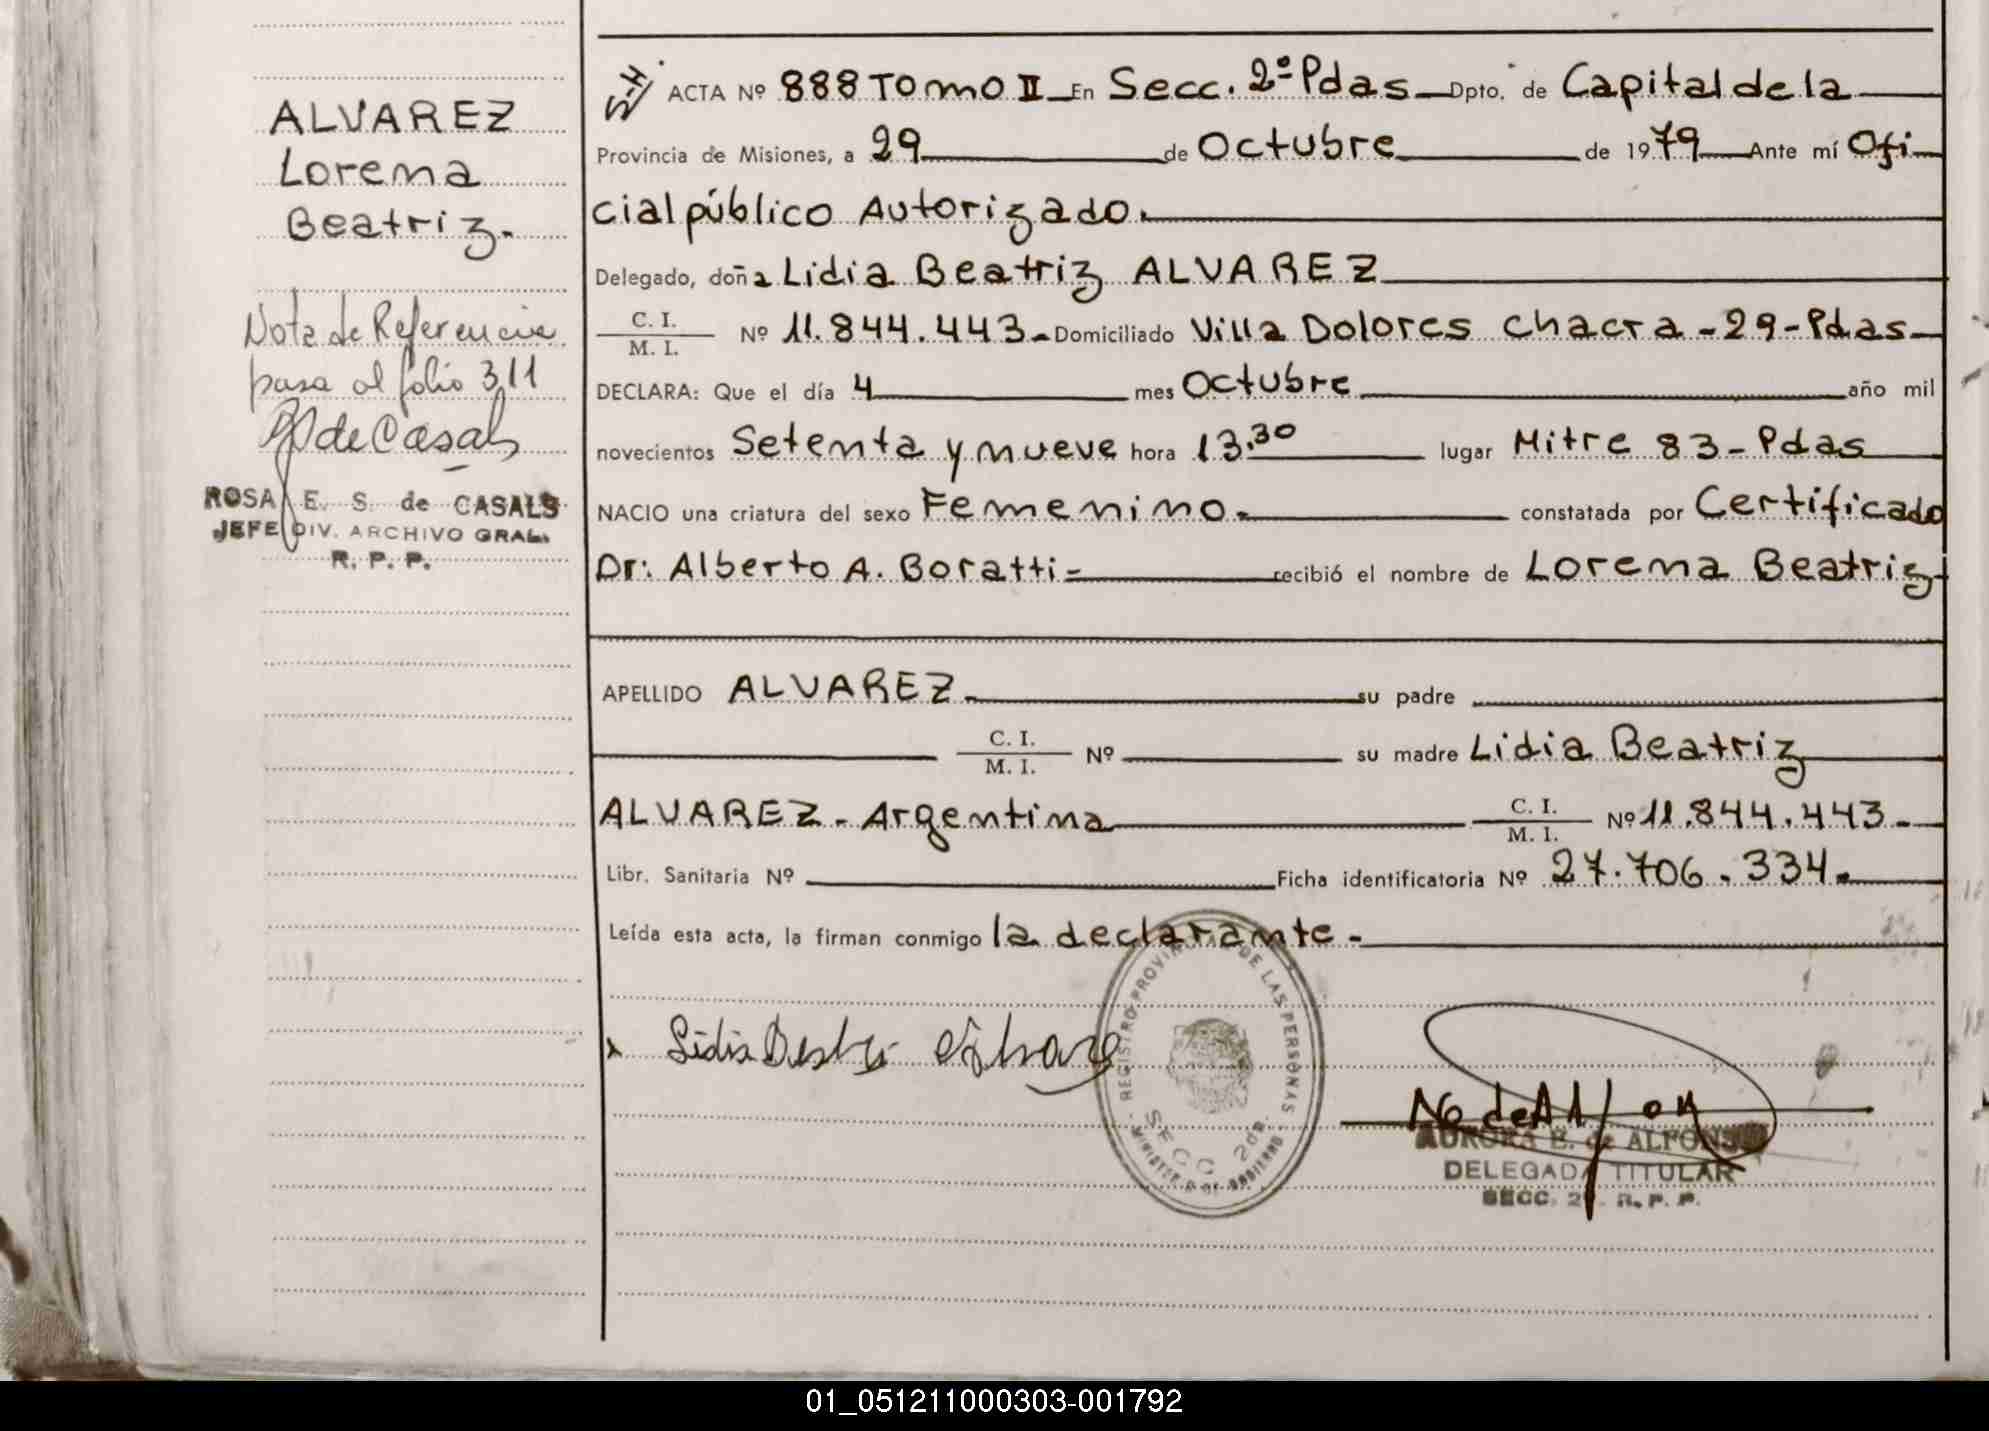 ALVAREZ
Lorena
Beatriz.
Nota de Referencia
pasa al folio 311
de Casals
ROSA E. S. de CASALS
JEFE DIV. ARCHIVO GRAL.
R. P. P.
ACTA Nº 888 Tomo II En Secc. 2º Pdas Dpto. de Capital de la
Provincia de Misiones, a 29 de Octubre de 1979 Ante mí Ofi
cial público Autorizado.
Delegado, doña Lidia Beatriz ALVAREZ
C. I.
M. I. Nº 11.844.443- Domiciliado Villa Dolores Chacra -29- Pdas
DECLARA: Que el día 4 mes Octubre año mil
novecientos Setenta y nueve hora 13.30 lugar Mitre 83- Pdas
NACIO una criatura del sexo Femenino. constatada por Certificado
Dr: Alberto A. Boratti- recibió el nombre de Lorena Beatriz
APELLIDO ALVAREZ su padre
C. I.
M. I. Nº su madre Lidia Beatriz
ALVAREZ - Argentina C. I.
M. I. Nº 11.844.443-
Libr. Sanitaria Nº Ficha identificatoria Nº 27.706.334.
Leída esta acta, la firman conmigo la declarante-
x Lidia Beatriz Alvarez
REGISTRO PROVINCIAL DE LAS PERSONAS
SECC 2da.
MINISTERIO DE GOBIERNO
de Alfon
AURORA E. de ALFONSO
DELEGADA TITULAR
SECC. 2ª. R. P. P.
01_051211000303-001792